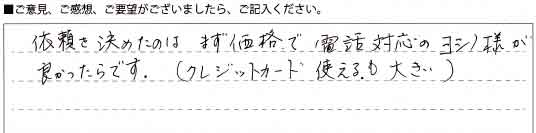 ■ご意見、ご感想、ご要望がございましたら、ご記入ください。
依頼を決めたのは まず価格で 電話対応のヨシノ様が
良かったらです。(クレジットカード 使えるも 大きい)